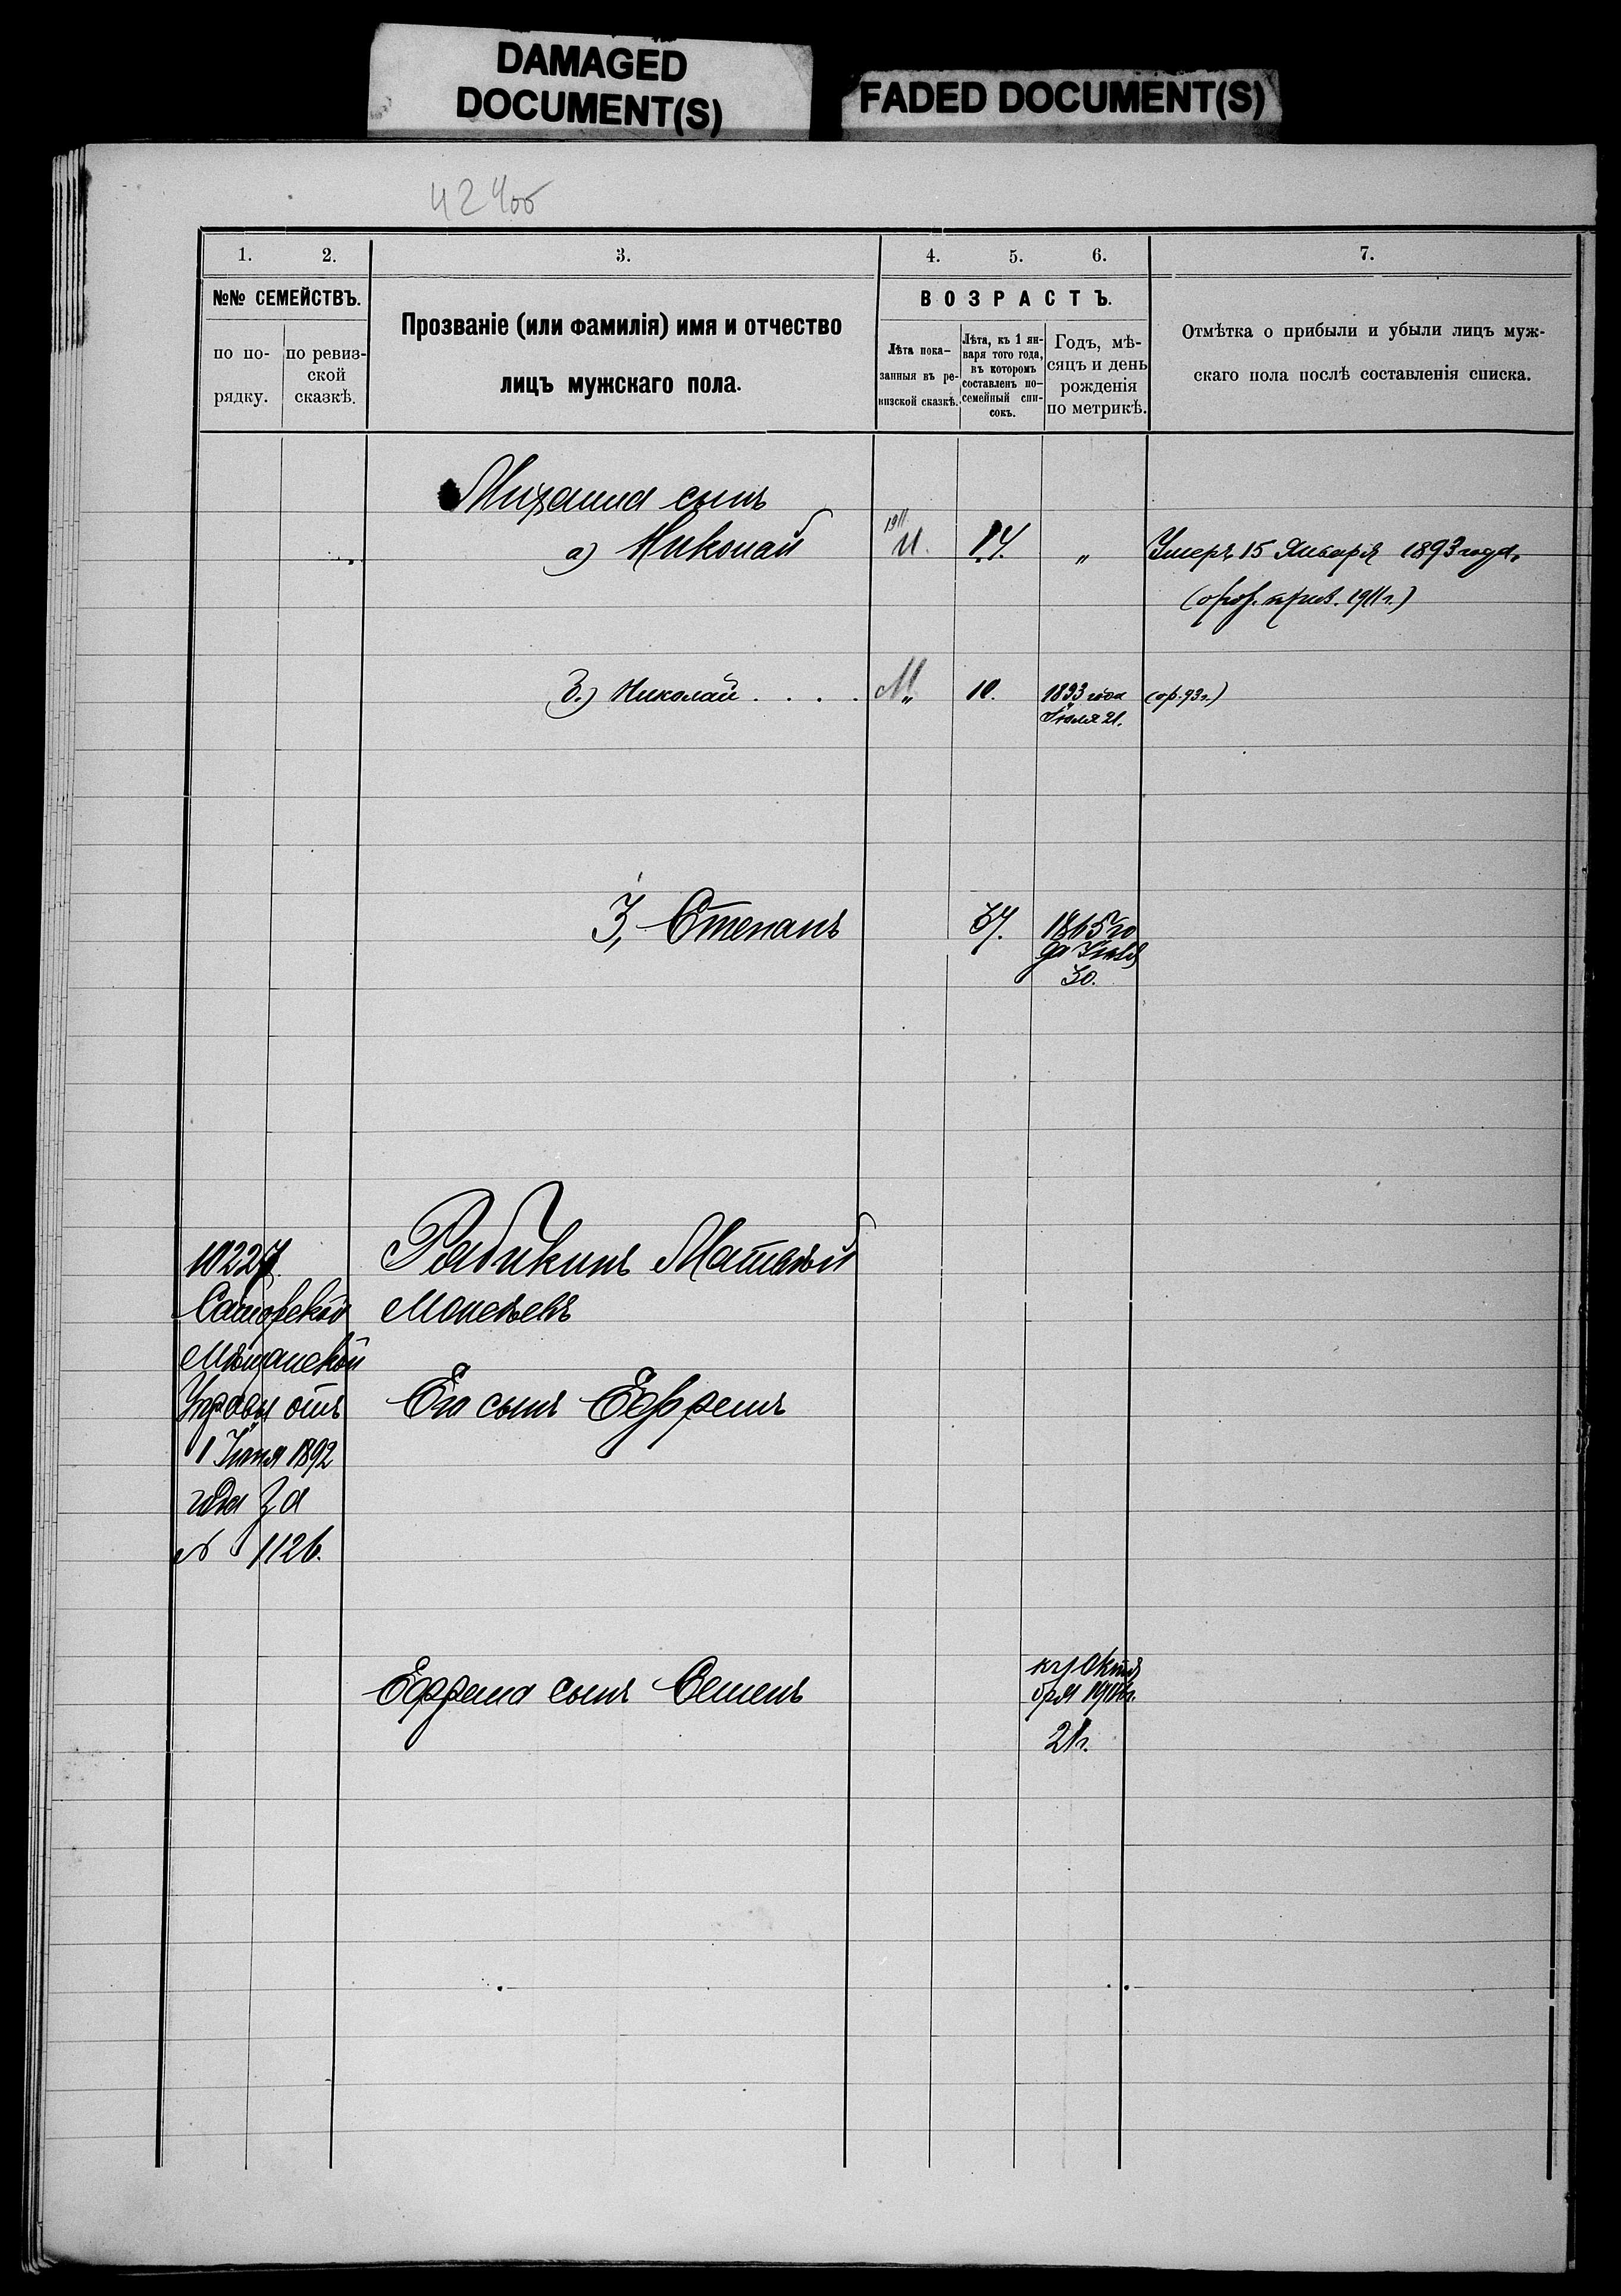 DAMAGED
DOCUMENT(S)
FADED DOCUMENT(S)
424об
1. 2. 3. 4. 5. 6. 7.
№№ СЕМЕЙСТВЪ.
по по-
рядку.
по ревиз-
ской
сказкѣ.
Прозваніе (или фамилія) имя и отчество
лицъ мужскаго пола.
ВОЗРАСТЪ.
Лѣта пока-
занныя въ ре-
визской сказкѣ.
Лѣта, къ 1 ян-
варя того года,
въ которомъ
составленъ по-
семейный спи-
сокъ.
Годъ, мѣ-
сяцъ и день
рожденія
по метрикѣ.
Отмѣтка о прибыли и убыли лицъ муж-
скаго пола послѣ составленія списка.
Михаила сынъ
а) Николай 1911 14. „ Умеръ 15 Января 1893 года.
1911 г.)
Николай . . . . М„ 10. 1893 года (ор. 93 г.)
Іюля 21.
3, Степанъ 37. 1865 го
да Іюля
30.
10227. Рабикинъ Матвѣй
Самарской Моисѣевъ
Мѣщанской
Управы отъ Его сынъ Ефремъ
1 Іюня 1892
года за
№ 1126.
Ефрема сынъ Семенъ къ 1 Октя
бря
21 г.